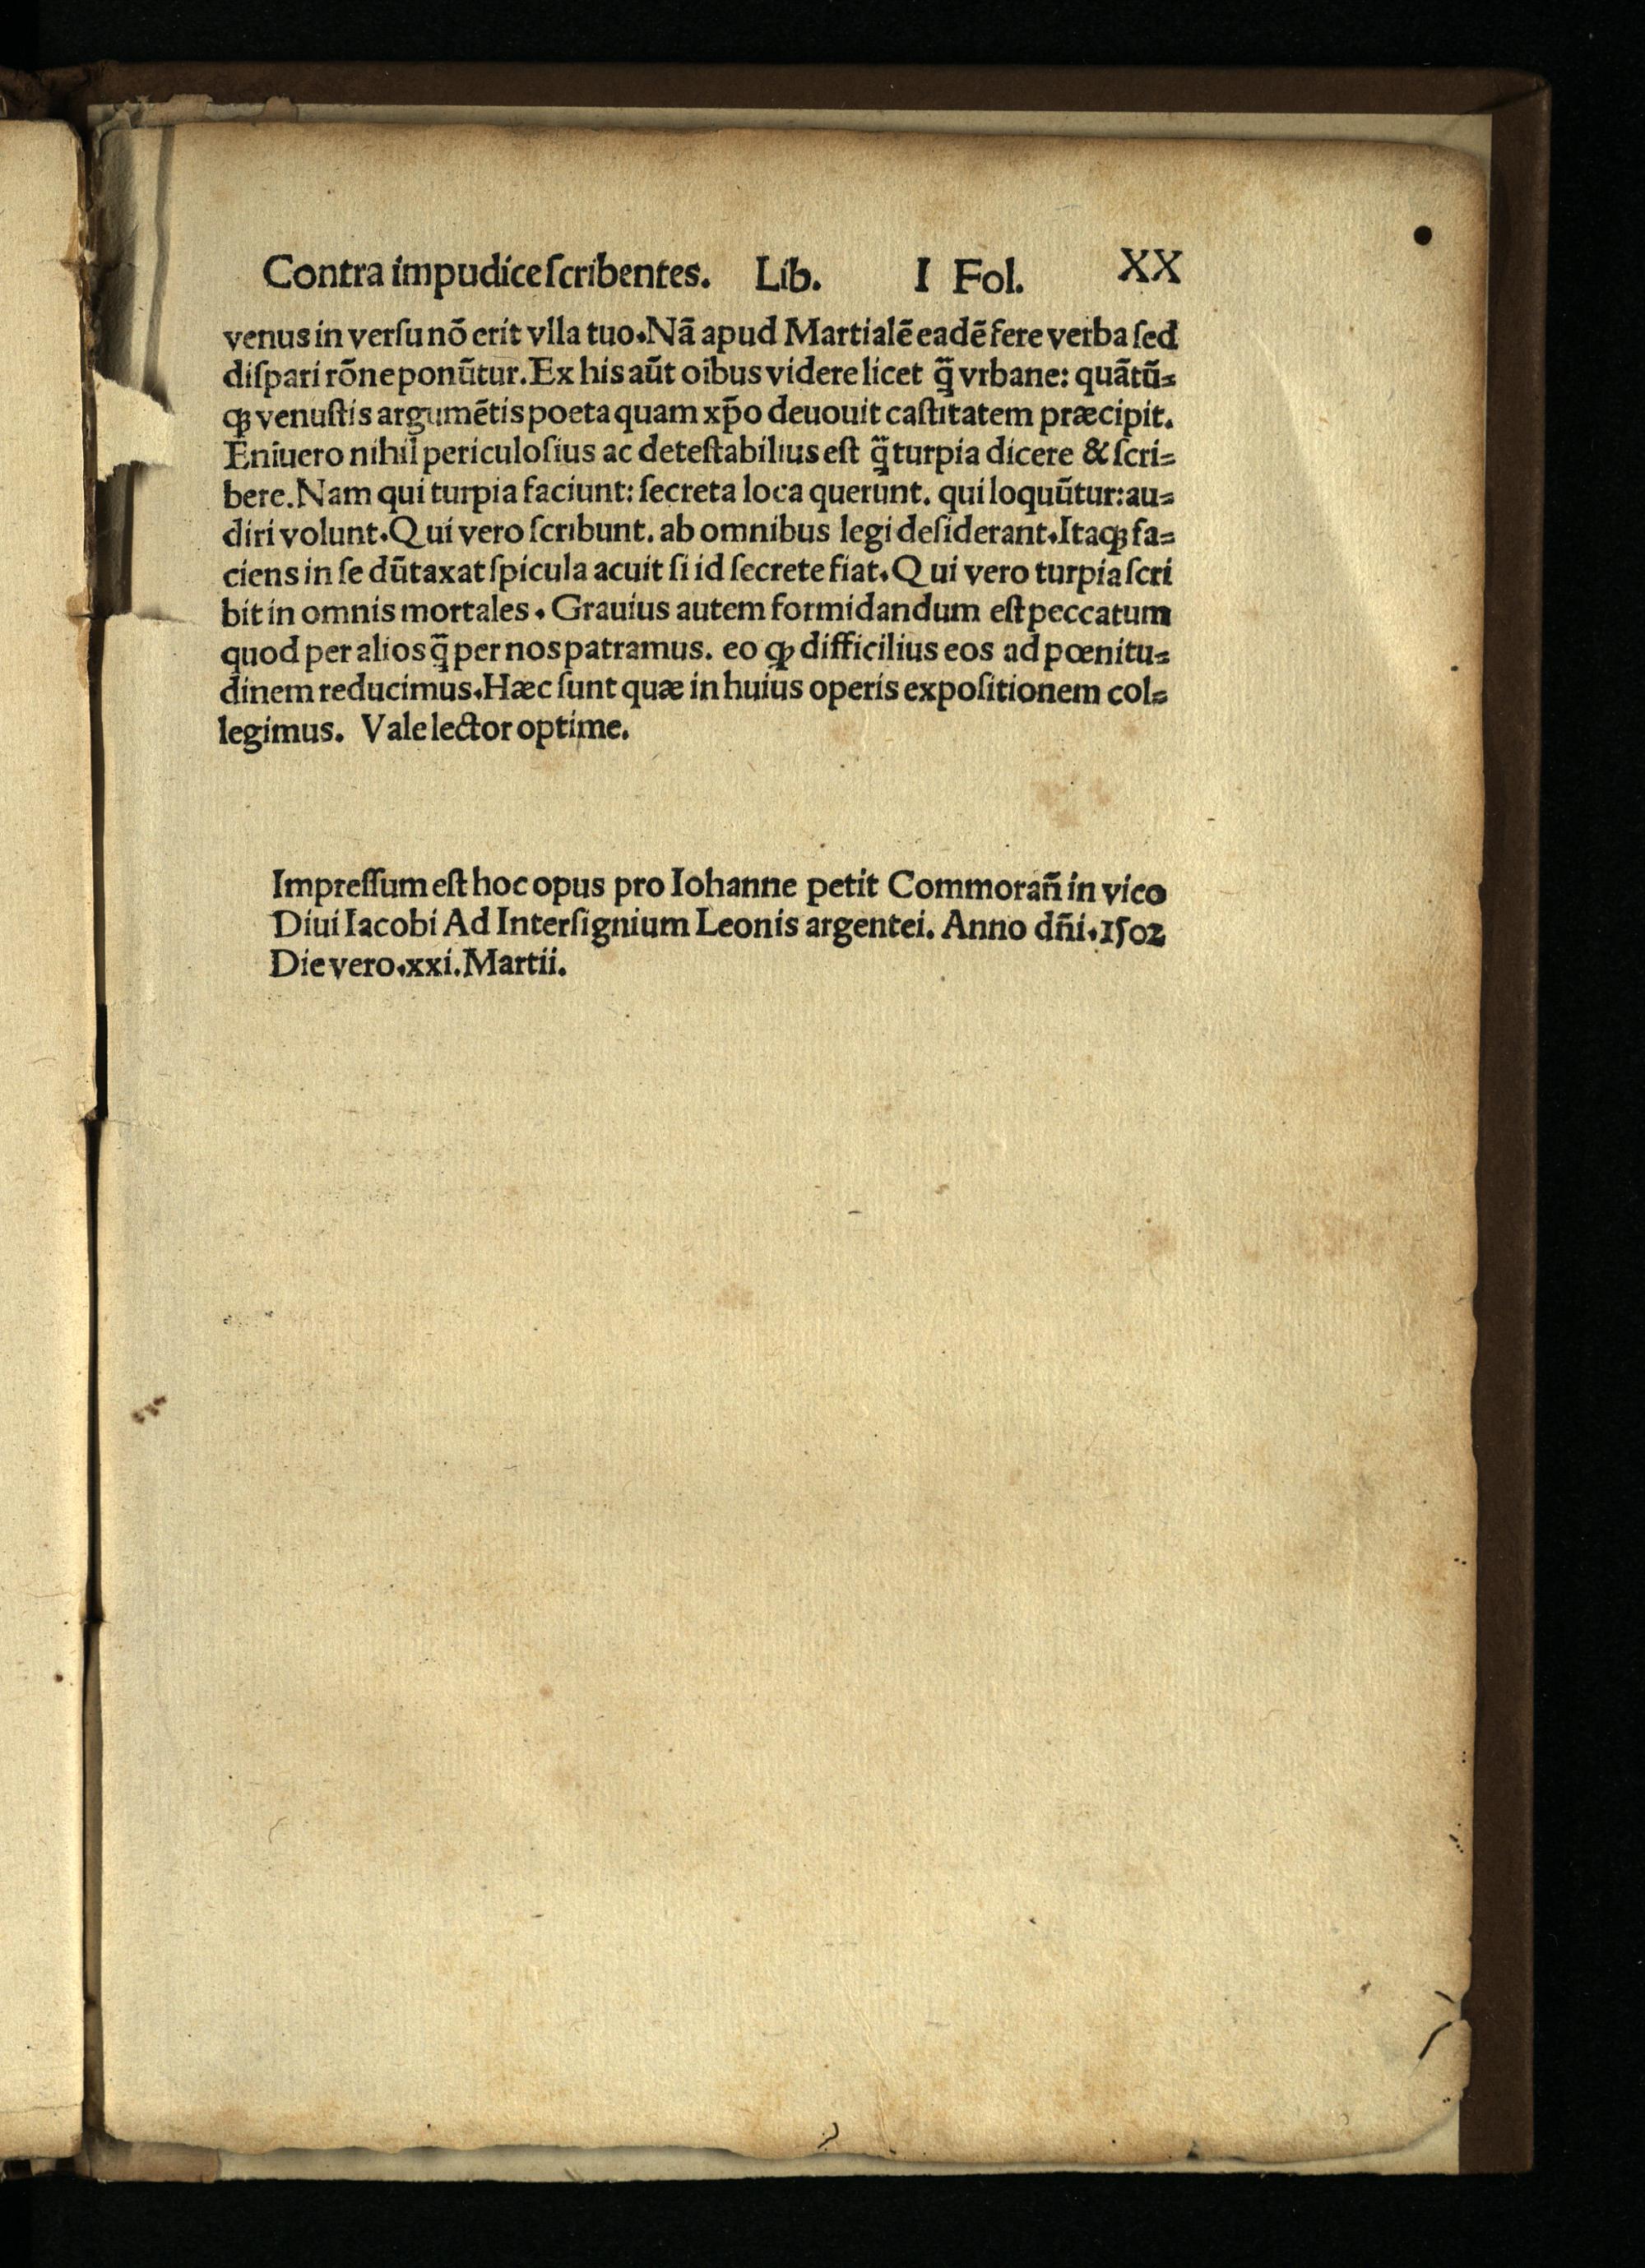 Contra impudice ſcribentes. Lib. I Fol. XX
venus in verſu nō erit vlla tuo. Nā apud Martialē eadē fere verba ſed
diſpari rōne ponūtur. Ex his aūt oībus videre licet q̄ vrbane: quātū⸗
qꝫ venuſtis argumētis poeta quam xp̄o deuouit caſtitatem præcipit.
Eniuero nihil periculoſius ac deteſtabilius eſt q̄ turpia dicere & ſcri⸗
bere. Nam qui turpia faciunt: ſecreta loca querunt. qui loquūtur: au⸗
diri volunt. Qui vero ſcribunt. ab omnibus legi deſiderant. Itaqꝫ fa⸗
ciens in ſe dūtaxat ſpicula acuit ſi id ſecrete fiat. Qui vero turpia ſcri
bit in omnis mortales. Grauius autem formidandum eſt peccatum
quod per alios q̄ per nos patramus. eo ꝙ difficilius eos ad pœnitu⸗
dinem reducimus. Hæc ſunt quæ in huius operis expoſitionem col⸗
legimus. Vale lector optime.
Impreſſum eſt hoc opus pro Iohanne petit Commorañ in vico
Diui Iacobi Ad Interſignium Leonis argentei. Anno dñi. 1502
Die vero. xxi. Martii.